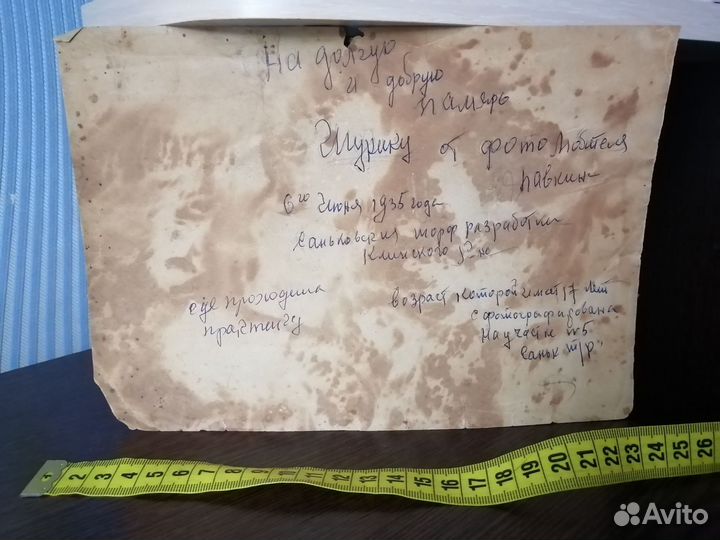 На долгую
и добрую
память
Шурику от фото любителя
Павкин
6го Июня 1935 года
Саньковския торф разработки
Клинского р-на
где проходила
практику
возраст которой имат 17 лет
сфотографирована
На участке №5
Саньк т/р"
2 3 4 5 6 7 8 9 10 11 12 13 14 15 16 17 18 19 20 21 22 23 24 25 26
Avito